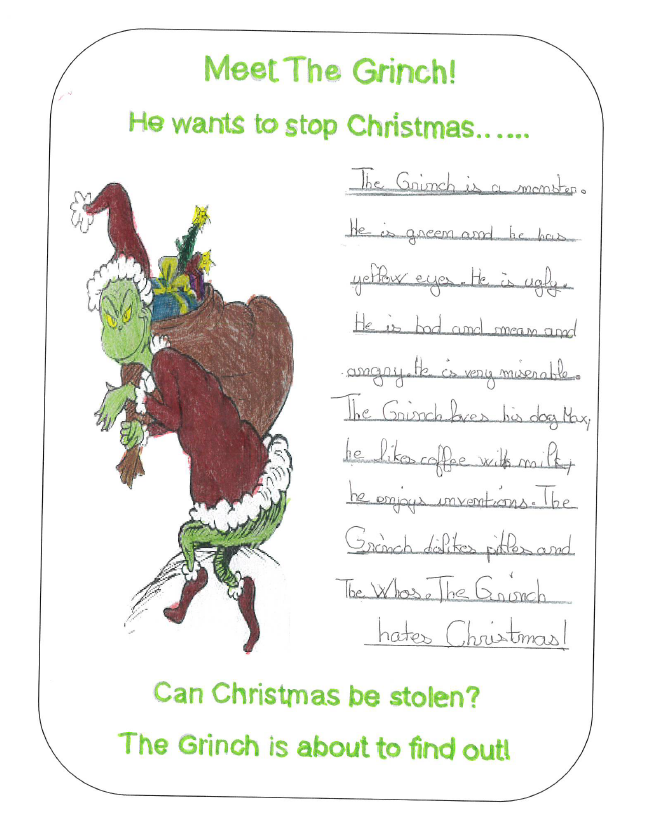 Meet The Grinch!
He wants to stop Christmas......
The Grinch is a monster.
He is green and he has
yellow eyes. He is ugly.
He is bad and mean and
angry. He is very miserable.
The Grinch loves his dog Max,
he likes coffee with milk,
he enjoys inventions. The
Grinch dislikes and
The Whos. The Grinch
hates Christmas!
Can Christmas be stolen?
The Grinch is about to find out!